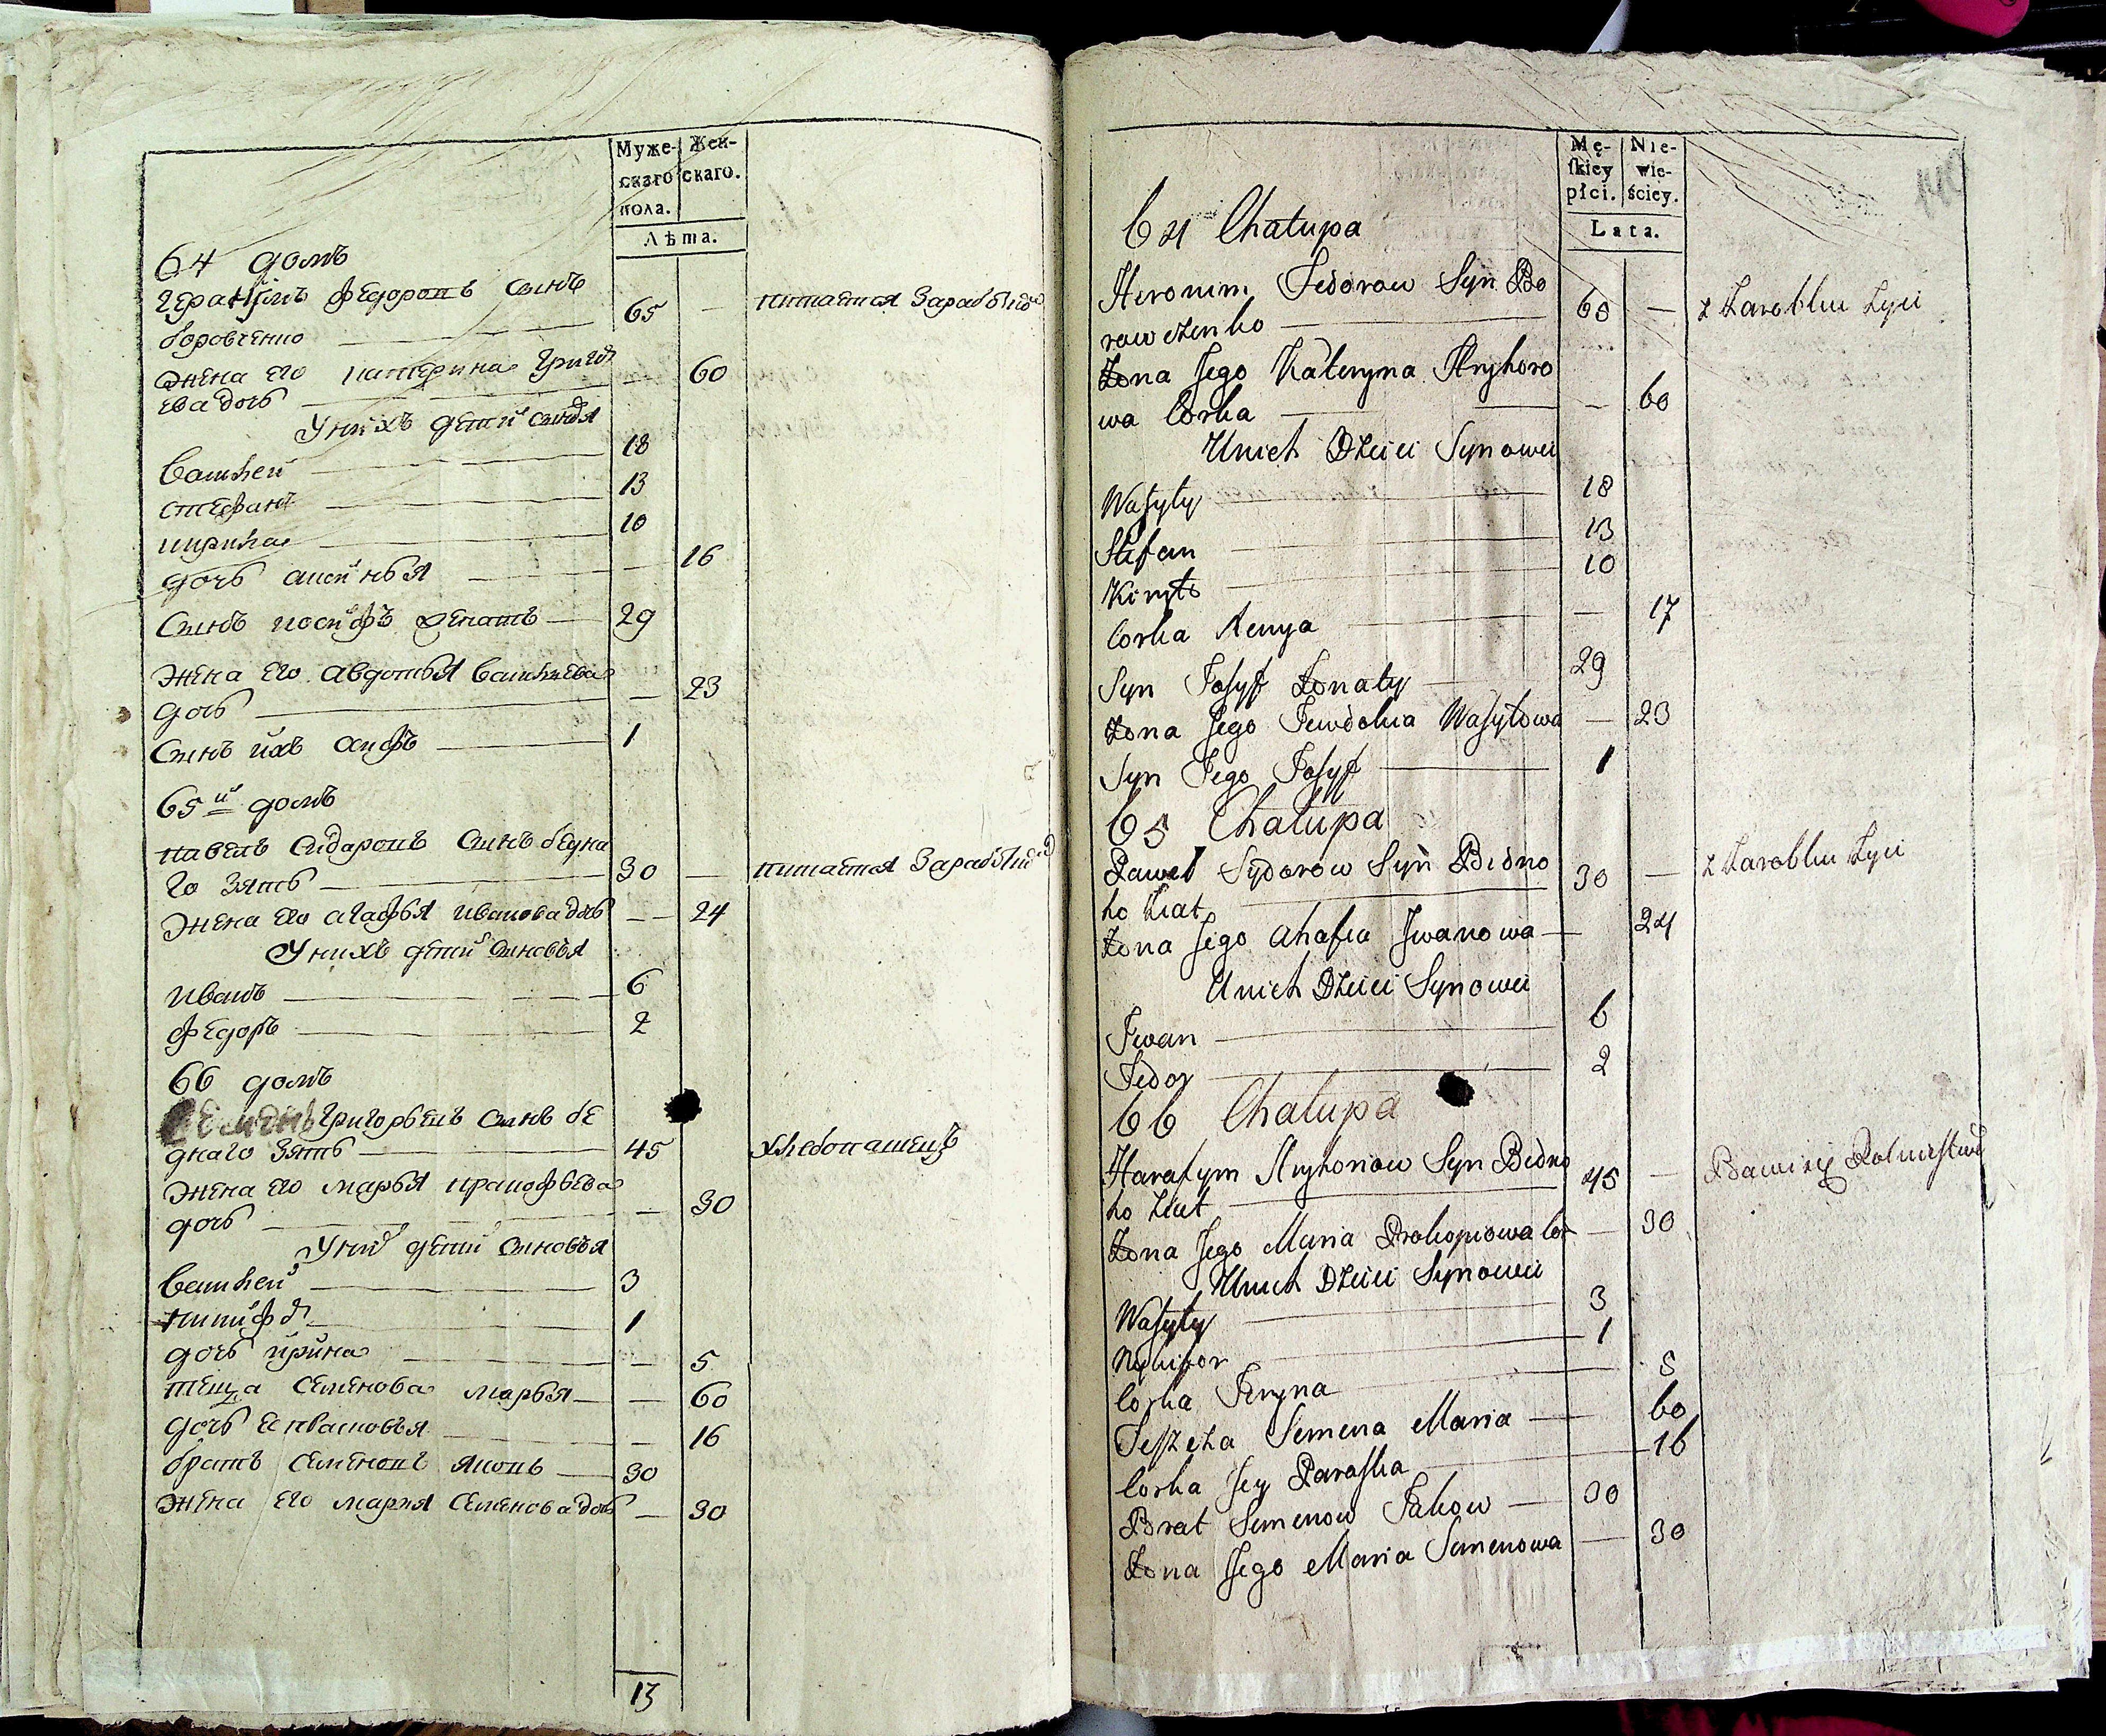 Муже- Жен-
скаго скаго.
пола.
Лѣта.
64 домъ
Герасимъ Федоровъ сынъ
боровченко 65 — питается Зараблчо
жена его катерина Григо
ева дочь — 60
У нихъ дети сыновя
Василей 18
стефанъ 13
кирила 10
дочь аксинья — 16
Сынъ иосифъ женатъ 29
жена его авдотья васильева
дочь — 23
Сынъ ихъ осифъ 1
65й домъ
павелъ Сидаровъ сынъ бедна
го зять 30 — питается Зараблчо
жена его агафья иванова дочь — 24
У нихъ дети сыновья
иванъ 6
федоръ 2
66 домъ
Григорьевъ сынъ бе
днаго зять 45 хлебопашецъ
жена его марья прокофьева
дочь — 30
У них дети сыновья
Василей 3
никифор 1
дочь ирина — 5
теща Семенова марья — 60
дочь — 16
братъ Семеновъ яковъ 30
жена его мария Семенова дочь — 30
13
Mę- Nie-
skiey wie-
płci. ściey.
Lata.
64 Chałupa
Heronim Fedorow Syn Bo
rowczenko 65 — z Zarobku Zyie
Zona Jego Kateryna Hryhoro
wa Corka — 60
Unich Dzieci Synowei
Wasyly 18
Stefan 13
Kiryło 10
Corka Xenya — 17
Syn Josyf Zonaty 29
Zona Jego Jewdokia Wasyłowa — 23
Syn Jego Josyf 1
65 Chałupa
Paweł Sydorow Syn Bidno
ho Ziat 30 — z Zarobku Zyie
Zona Jego Ahafia Jwanowa — 24
Unich Dzieci Synowei
Jwan 6
Fedor 2
66 Chałupa
Harasym Hryhoriow Syn Bidno
ho Ziat 45 — Bawi się Rolnictwem
Zona Jego Maria Prokopiowa Cor — 30
Unich Dzieci Synowei
Wasyly 3
Nykifor 1
Corka Jeryna 5
Teszcza Semena Maria — 60
Corka Jey Paraska — 16
Brat Semenow Jakow — 30
Zona Jego Maria Semenowa — 30